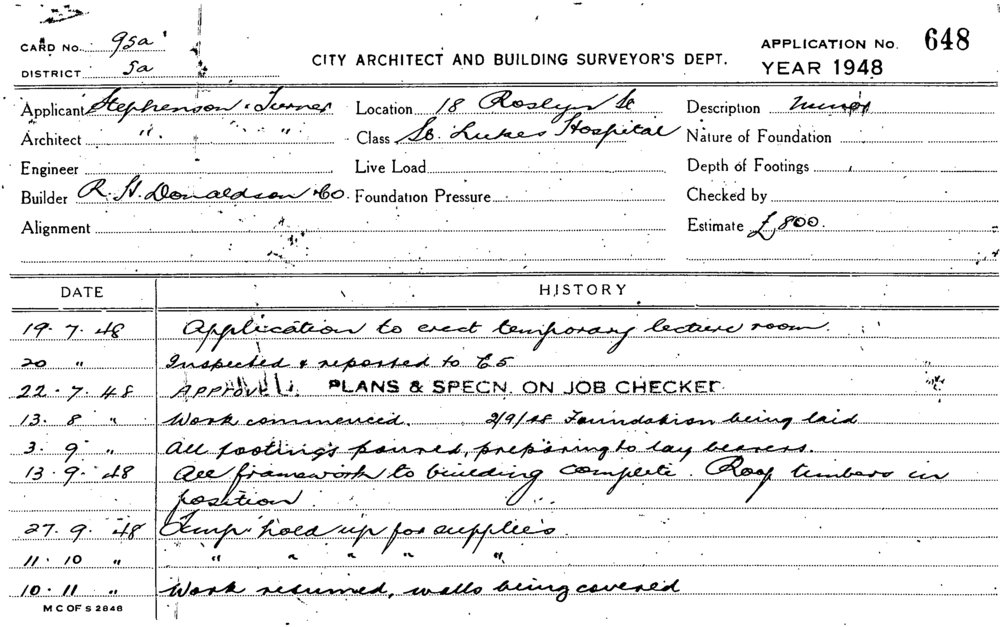 CARD No. 95a
DISTRICT 5a
CITY ARCHITECT AND BUILDING SURVEYOR'S DEPT.
APPLICATION No. 648
YEAR 1948
Applicant Stephenson & Turner Location 18 Roslyn St Description Minor
Architect " " Class St. Lukes Hospital Nature of Foundation
Engineer Live Load Depth of Footings
Builder R. H. Donaldson & Co. Foundation Pressure Checked by
Alignment Estimate £800.
DATE HISTORY
19. 7. 48 Application to erect temporary lecture room.
20 " Inspected & reported to E5
22. 7. 48 APPROVED PLANS & SPECN. ON JOB CHECKED
13. 8 " Work commenced. 2/9/48 Foundation being laid
3. 9 " All footings poured, preparing to lay bearers.
13. 9. 48 All framework to building complete. Roof timbers in
position
27. 9. 48 Temp. hold up for supplies
11. 10 " " " " "
10. 11 " Work resumed, walls being covered
M C OF S 2848